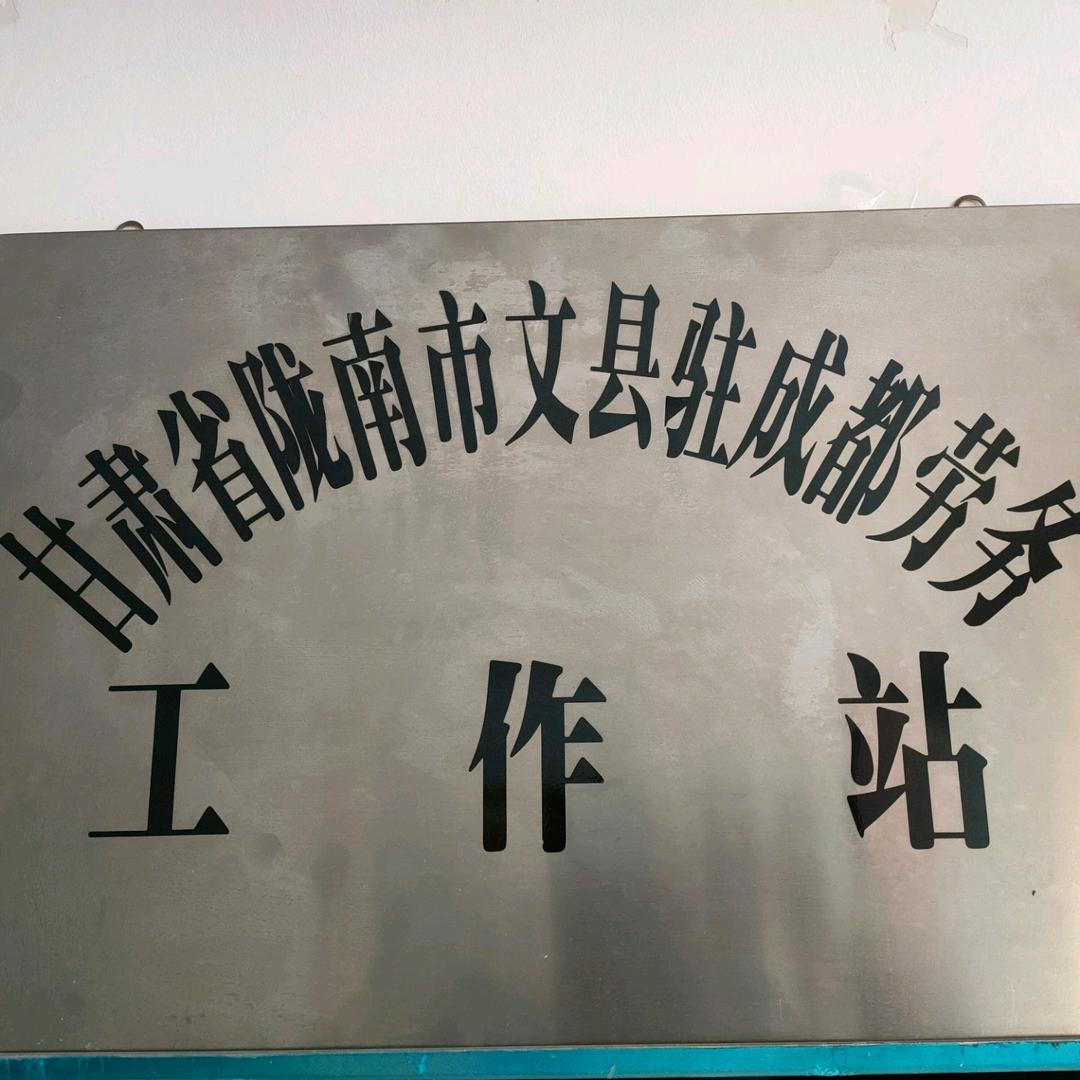 甘肃省陇南市文县驻成都劳务
工作站